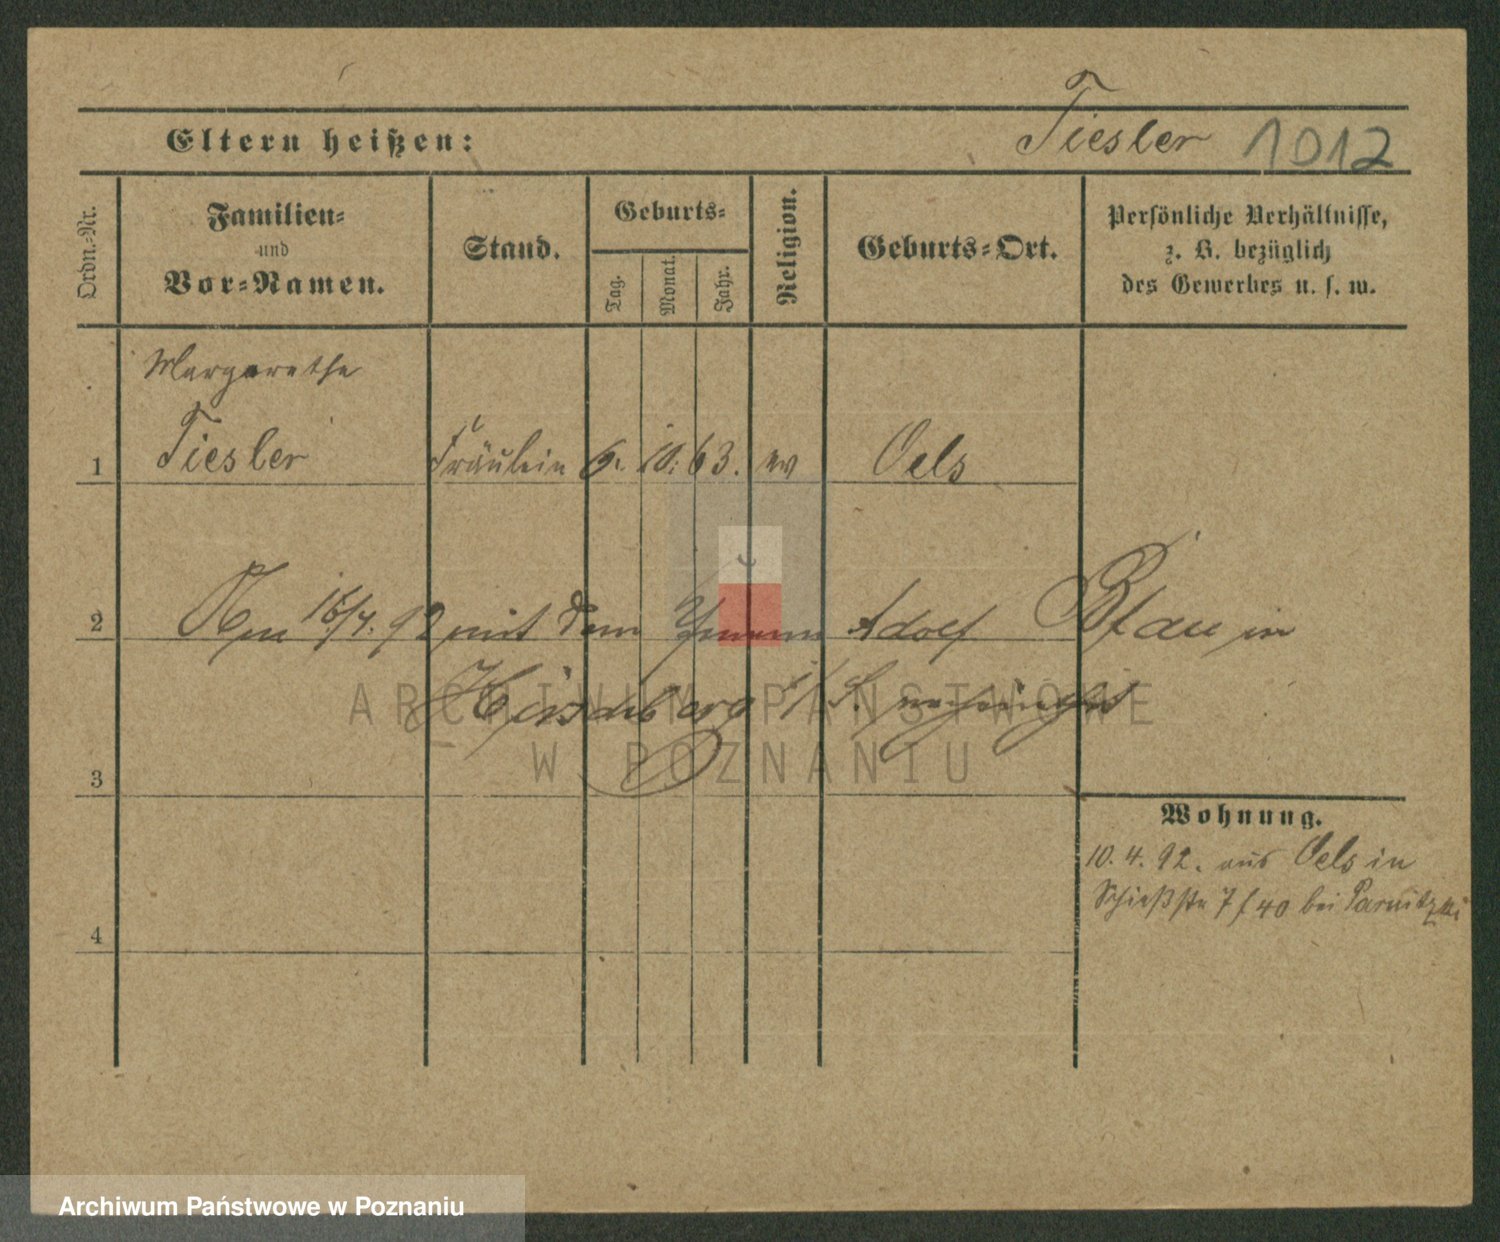 Tiesler 1012
Eltern heißen:
Ordn.-Nr.
Familien-
und
Vor-Namen.
Stand.
Geburts-
Tag.
Monat.
Jahr.
Religion.
Geburts-Ort.
Persönliche Verhältnisse,
z. B. bezüglich
des Gewerbes u. s. w.
Margarethe
1 Tiesler Fräulein 6. 10. 63. ev Oels
2 Am 16/4. 92 mit dem Adolf Blau in
Hirschberg i/S.
ARCHIWUM PAŃSTWOWE
W POZNANIU
3
Wohnung.
10. 4. 92. aus Oels in
Schießstr 7 f 40 bei
4
Archiwum Państwowe w Poznaniu